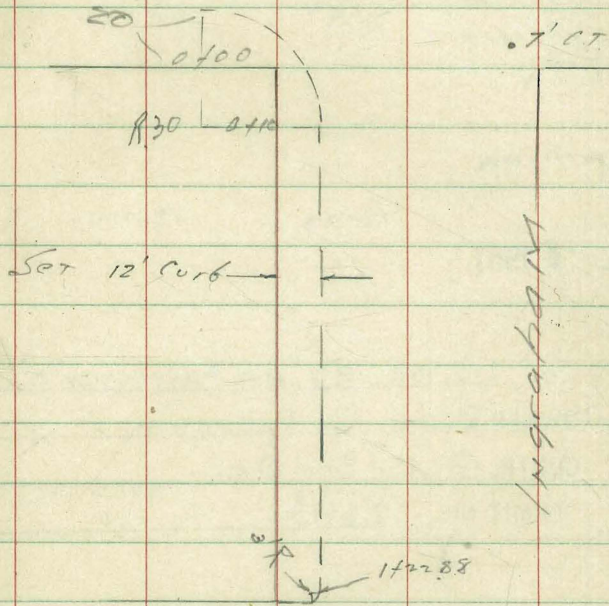 20
0+00
7' CT.
R.30 0+10
Set 12' Curb
Ingraham
3'R
1+22.88